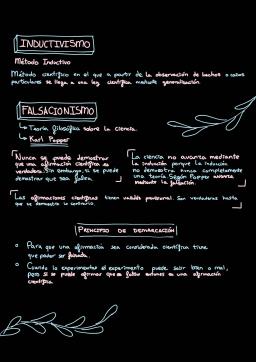 INDUCTIVISMO
Método Inductivo
Método científico en el que a partir de la observación de hechos o casos
particulares se llega a una ley científica mediante generalización
FALSACIONISMO
Teoría filosófica sobre la ciencia.
Karl Popper
Nunca se puede demostrar
que una afirmación científica es
verdadera. Sin embargo, sí se puede
demostrar que sea falsa.
La ciencia no avanza mediante
la inducción porque la inducción
no demuestra nunca completamente
una teoría. Según Popper avanza
mediante la falsación.
Las afirmaciones científicas tienen validez provisional. Son verdaderas hasta
que se demuestre lo contrario.
PRINCIPIO DE DEMARCACIÓN
Para que una afirmación sea considerada científica tiene
que poder ser falsada.
Cuando lo experimentas el experimento puede salir bien o mal,
pero si se puede afirmar que es falsa entonces es una afirmación
científica.